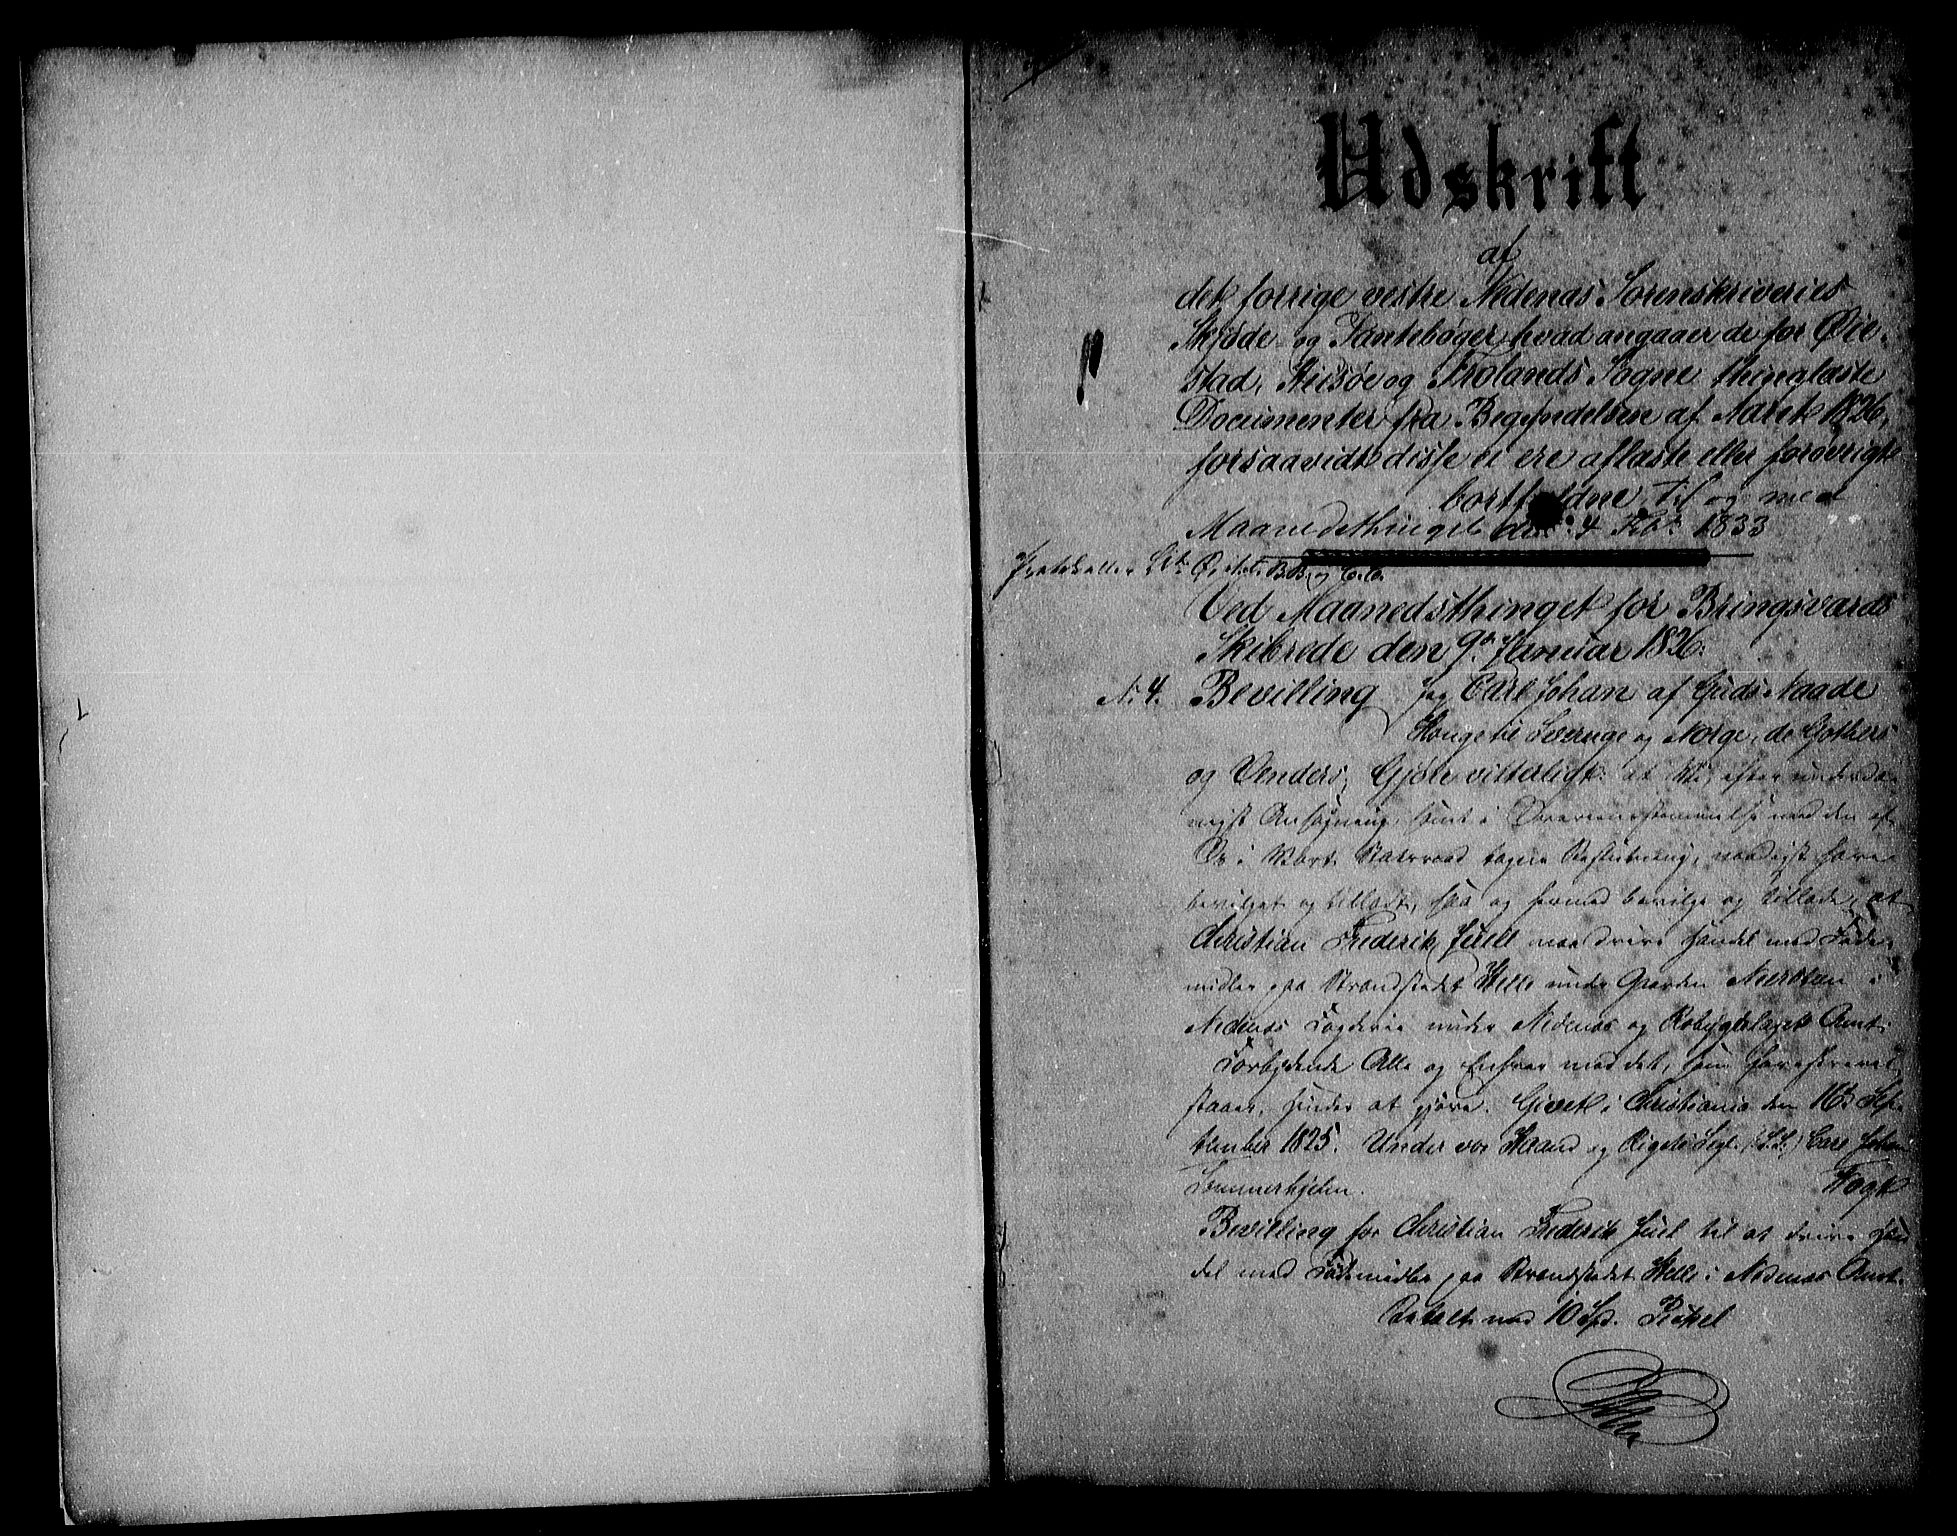 Udskrift
af
det forrige vestre Nedenæs Sorenskriveries
Skjøde- og Pantebøger, hvad angaaer de for Øie-
stad, Hiisøe og Frolands Sogne thinglæste
Documenter fra Begyndelsen af Aaret 1826,
forsaavidt disse ei ere aflæste eller forøvrigt
bortfaldne, til og med
Maanedsthinget den 4 Feb. 1833
Protokoller Lit. B.B. og C.C.
Ved Maanedsthinget for Bringsværds
Skibrede den 9de Januar 1826.
No 4. Bevilling Jeg Carl Johan af Guds Naade
Konge til Sverige og Norge, de Gothers
og Venders, Gjøre vitterligt: at Vi, efter underda-
nigst Ansøgning, samt i Overeensstemmelse med den af
Os i Vort Statsraad tagne Beslutning, naadigst have
bevilget og tilladt, saa og herved bevilge og tillade, at
Christian Frederik Juell maa drive Handel med Føde-
midler paa Strandstedet Helle under Gaarden Neersteen i
Nedenæs Fogderie under Nedenæs og Robygdelagets Amt.
Forbydende Alle og Enhver mod det, som foreskrevet
staaer, Hinder at gjøre. Givet i Christiania den 16de Sep-
tember 1825. Under vor Haand og Rigets Segl. (L.S.) Carl Johan
Sommerhjelm. Vogt
Bevilling for Christian Frederik Juel til at drive Han-
del med Fødemidler paa Strandstedet Helle i Nedenæs Amt.
Betalt med 10 Spd.